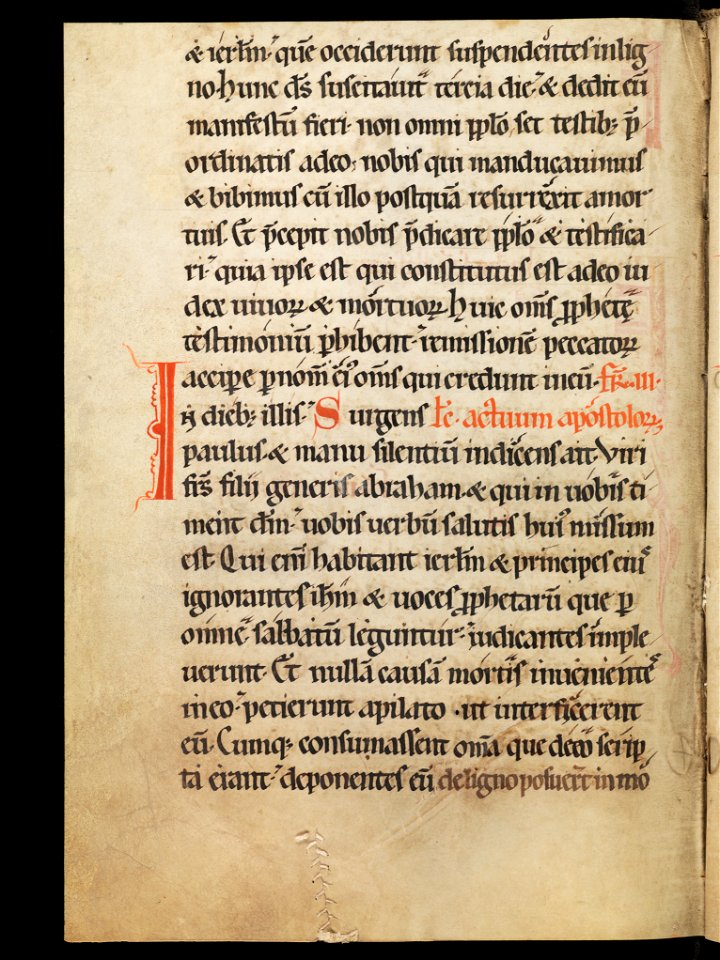 & ierl̅m. que̅ occiderunt suspendentes in lig
no. Hunc d̅s suscitauit tercia die. & dedit eu̅
manifestu̅ fieri. non omni pp̅lo set testib; p̅
ordinatis a deo. nobis qui manducauimus
& bibimus cu̅ illo postqua̅ resurrexit a mor
tuis. Et p̅cepit nobis p̅dicare pp̅lo & testifica
ri. quia ipse est qui constitutus est a deo iu
dex uiuoꝝ & mortuoꝝ. Huic om̅s ꝓphetę
testimoniu̅ p̱hibent. remissione̅ peccatoꝝ
accipe p̱ nom̅ ei᷒ om̅s qui credunt in eu̅. fr̅. iii.
In dieb; illis. Surgens lc̅. actuum apostoloꝝ.
paulus. & manu silentiu̅ indicens ait. Viri
fr̅s filii generis abraham. & qui in uobis ti
ment d̅m. uobis uerbu̅ salutis hui᷒ missum
est. Qui eni̅ habitant ierl̅m & principes eius
ignorantes ih̅m & uoces ꝓphetaru̅ que ꝑ
omne̅ sabbatu̅ leguntur. iudicantes imple
uerunt. Et nulla̅ causa̅ mortis inueniente᷒
in eo. petierunt a pilato. ut interficerent
eu̅. Cumq; consumassent om̅a que de eo scrip
ta erant. deponentes eu̅ de ligno posuer̅t in mo̅